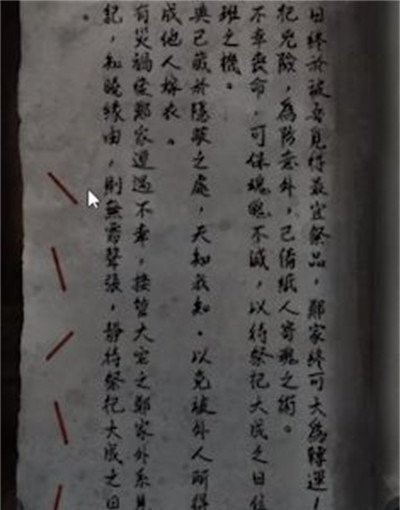 日終於被吾覓得最宜祭品，鄭家終可大為轉運！
祀兇險，為防意外，已備紙人寄魂之術。
不幸喪命，可保魂魄不滅，以待祭祀大成之日
班之機。
已藏於隱蔽之處，天知我知。以免被外人所得
成他人嫁衣。
有災禍使鄭家遭遇不幸，接管大宅之鄭家外系見
記，知曉緣由，則無需聲張，靜待祭祀大成之日
。